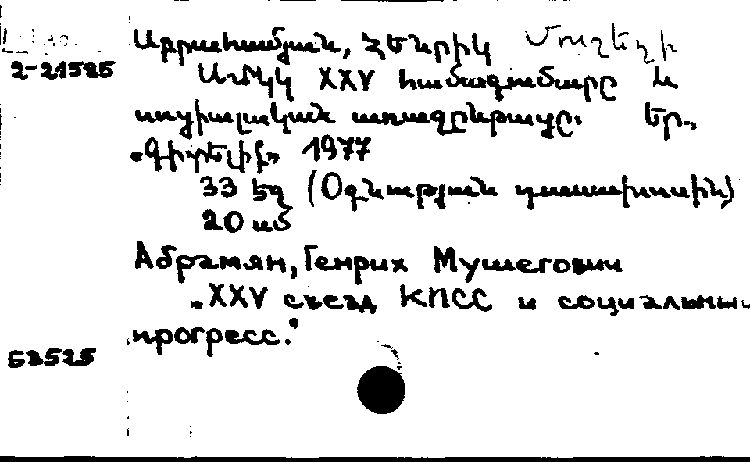 Աբրահամյան, Հենրիկ Մուշեղի
2-21585
ՍՄԿԿ XXV համագումարը և
սոցիալական առաջընթացը. Եր.,
«Գիտելիք» 1977
33 եջ (Օգնության դասախոսին)
20 սմ
Абрамян, Генрих Мушегович
„XXV съезд КПСС и социальны
прогресс."
53525